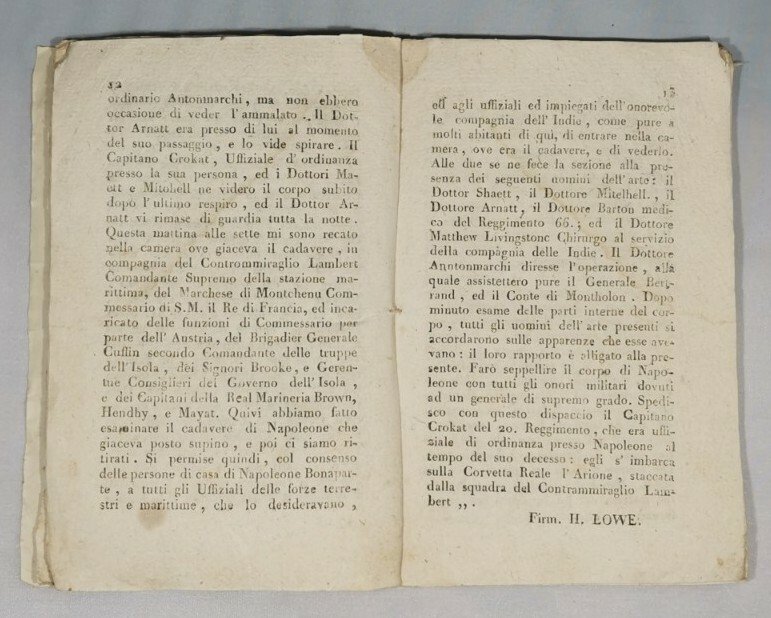 12
ordinario Antonmarchi, ma non ebbero
occasione di veder l'ammalato. Il Dot-
tor Arnatt era presso di lui al momento
del suo passaggio, e lo vide spirare. Il
Capitano Crokat, Uffiziale d'ordinanza
presso la sua persona, ed i Dottori Ma-
ett e Mitchell ne videro il corpo subito
dopo l'ultimo respiro, ed il Dottor Ar-
natt vi rimase di guardia tutta la notte.
Questa mattina alle sette mi sono recato
nella camera ove giaceva il cadavere, in
compagnia del Controммiraglio Lambert
Comandante Supremo della stazione ma-
rittima, del Marchese di Montchenu Com-
messario di S.M. il Re di Francia, ed inca-
ricato delle funzioni di Commessario per
parte dell'Austria, del Brigadier Generale
Cuffin secondo Comandante delle truppe
dell'Isola, dei Signori Brooke, e Geren-
tue Consiglieri dei Governo dell'Isola,
e dei Capitani della Real Marineria Brown,
Hendhy, e Mayat. Quivi abbiamo fatto
esaminare il cadavere di Napoleone che
giaceva posto supino, e poi ci siamo ri-
tirati. Si permise quindi, col consenso
delle persone di casa di Napoleone Bonapar-
te, a tutti gli Uffiziali delle forze terre-
stri e marittime, che lo desideravano,
13
ed agli uffiziali ed impiegati dell'onorevo-
le compagnia dell'Indie, come pure a
molti abitanti di qui, di entrare nella ca-
mera, ove era il cadavere, e di vederlo.
Alle due se ne fece la sezione alla pre-
senza dei seguenti uomini dell'arte: il
Dottor Shaett, il Dottore Mitelhell., il
Dottore Arnatt, il Dottore Barton medi-
co del Reggimento 66.; ed il Dottore
Matthew Livingstone Chirurgo al servizio
della compagnia delle Indie. Il Dottore
Anntonmarchi diresse l'operazione, alla
quale assistettero pure il Generale Bert-
rand, ed il Conte di Montholon. Dopo
minuto esame delle parti interne del cor-
po, tutti gli uomini dell'arte presenti si
accordarono sulle apparenze che esse ave-
vano: il loro rapporto è alligato alla pre-
sente. Farò seppellire il corpo di Napo-
leone con tutti gli onori militari dovuti
ad un generale di supremo grado. Spedi-
sco con questo dispaccio il Capitano
Crokat del 20. Reggimento, che era uffi-
ziale di ordinanza presso Napoleone al
tempo del suo decesso: egli s'imbarca
sulla Corvetta Reale l'Arione, staccata
dalla squadra del Contrammiraglio Lam-
bert ,, .
Firm. H. LOWE.